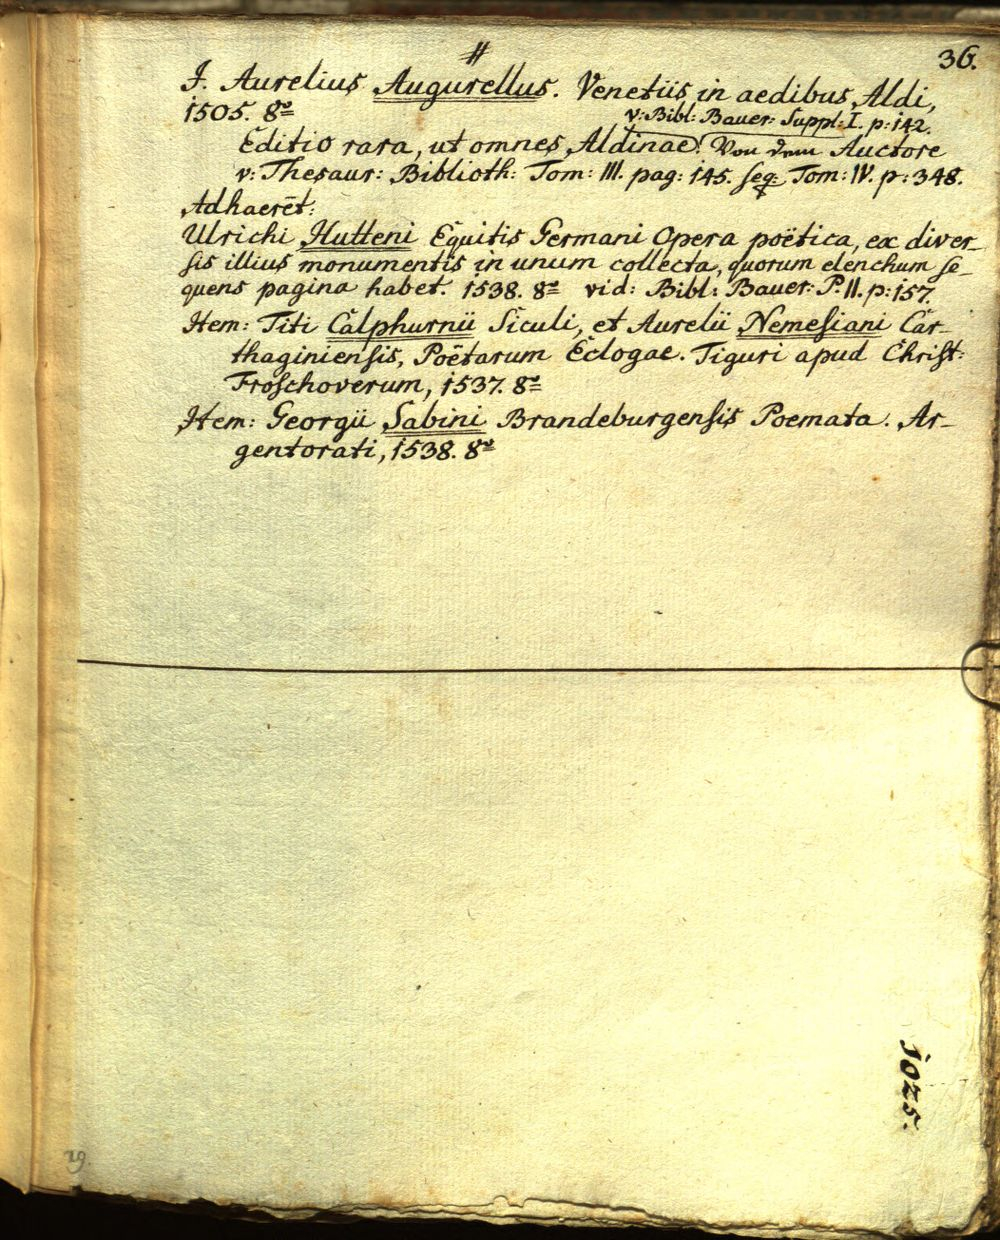 #
36.
J. Aurelius Augurellus. Venetiis in aedibus Aldi,
1505. 8vo
v: Bibl: Bauer: Suppl: I. p: 142.
Editio rara, ut omnes Aldinae. Von dem Auctore
v: Thesaur: Biblioth: Tom: III. pag: 145. seq: Tom: IV. p: 348.
Adhaeret:
Ulrichi Hutteni Equitis Germani Opera poëtica, ex diver-
sis illius monumentis in unum collecta, quorum elenchum se-
quens pagina habet. 1538. 8vo vid: Bibl: Bauer: P. II. p: 157.
Item: Titi Calphurnii Siculi, et Aurelii Nemesiani Car-
thaginiensis, Poëtarum Eclogae. Tiguri apud Christ:
Froschoverum, 1537. 8vo
Item: Georgii Sabini Brandeburgensis Poemata. Ar-
gentorati, 1538. 8vo
1025.
29.